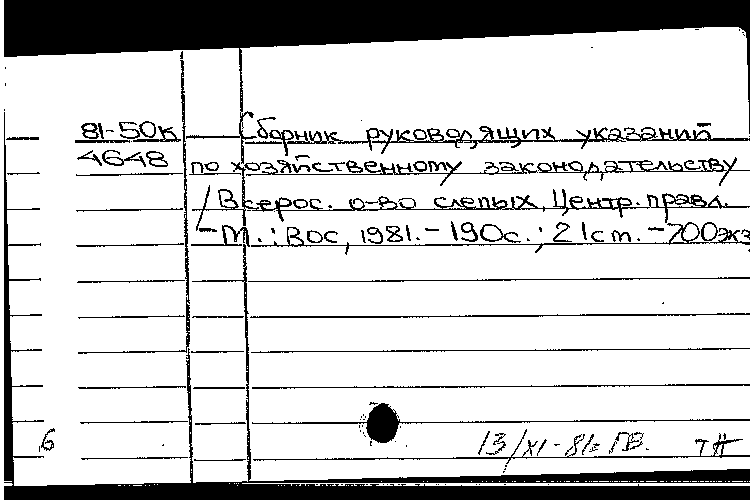 81-50к Сборник руководящих указаний
4648 по хозяйственному законодательству
/Всерос. о-во слепых, Центр. правл.
- М.: ВОС, 1981. - 190с.; 21см. - 700экз
6 13/XI-81г ГВ.